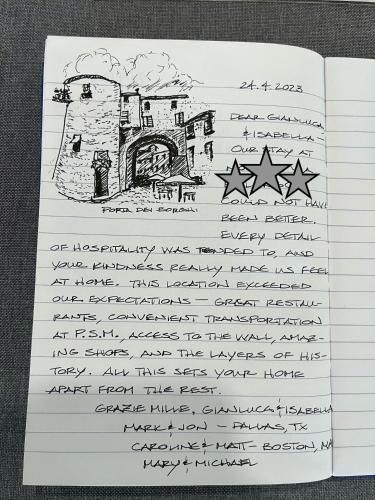 24.4.2023
DEAR GIANLUCA
& ISABELLA
OUR STAY AT
COULD NOT HAVE
BEEN BETTER.
EVERY DETAIL
PORTA DEI BORGHI
OF HOSPITALITY WAS TENDED TO, AND
YOUR KINDNESS REALLY MADE US FEEL
AT HOME. THIS LOCATION EXCEEDED
OUR EXPECTATIONS — GREAT RESTAU-
RANTS, CONVENIENT TRANSPORTATION
AT P.S.M., ACCESS TO THE WALL, AMAZ-
ING SHOPS, AND THE LAYERS OF HIS-
TORY. ALL THIS SETS YOUR HOME
APART FROM THE REST.
GRAZIE MILLE, GIANLUCA & ISABELLA
MARK & JON — DALLAS, TX
CAROLINE & MATT — BOSTON, MA
MARY & MICHAEL